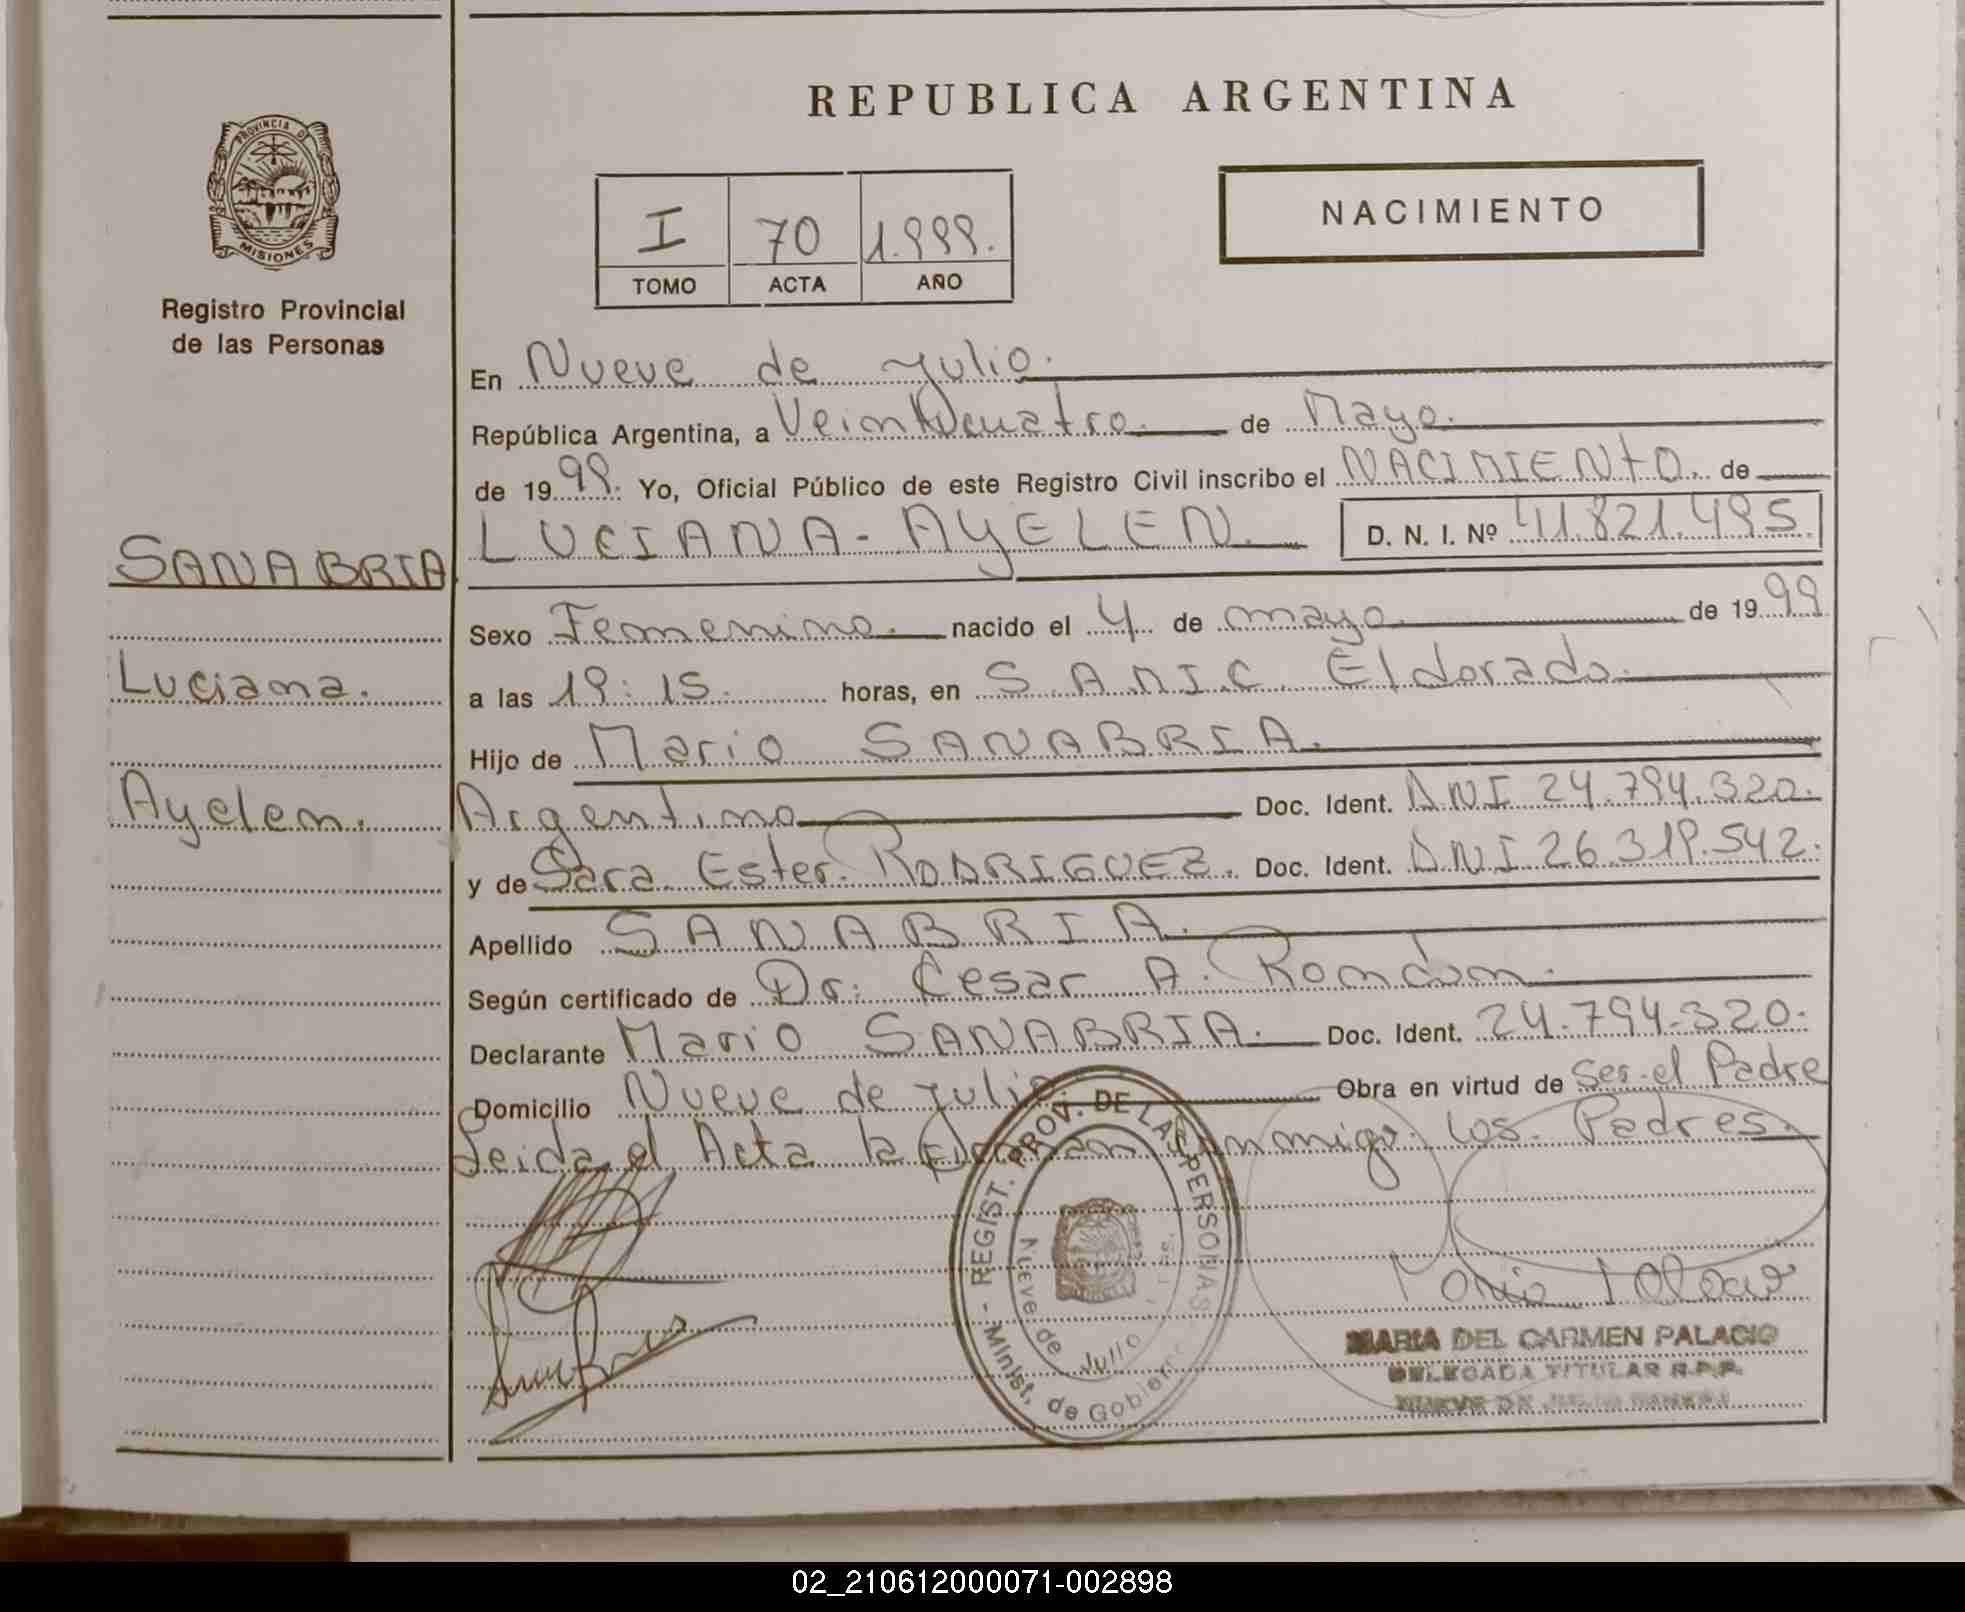 REPUBLICA ARGENTINA
PROVINCIA DE
MISIONES
Registro Provincial
de las Personas
I 70 1.999.
TOMO ACTA AÑO
NACIMIENTO
En Nueve de Julio.
República Argentina, a Veinticuatro. de Mayo.
de 1999. Yo, Oficial Público de este Registro Civil inscribo el NACIMIENTO. de
LUCIANA-AYELEN. D. N. I. Nº 41.821.495.
SANABRIA
Sexo Femenino. nacido el 4 de mayo de 1999
Luciana.
a las 19:15. horas, en S.A.M.I.C. Eldorado.
Hijo de Mario SANABRIA.
Ayelen.
Argentino Doc. Ident. DNI 24.794.320.
y de Sara Ester RODRIGUEZ. Doc. Ident. DNI 26.319.542.
Apellido SANABRIA.
Según certificado de Dr. Cesar A.
Declarante Mario SANABRIA. Doc. Ident. 24.794.320.
Domicilio Nueve de Julio Obra en virtud de Ser el Padre
Leida el Acta la conmigo los Padres.
- REGIST. PROV. DE LAS PERSONAS
Nueve de Julio
Minist. de Gobierno
MARIA DEL CARMEN PALACIO
DELEGADA TITULAR R.P.P.
NUEVE DE JULIO
02_210612000071-002898